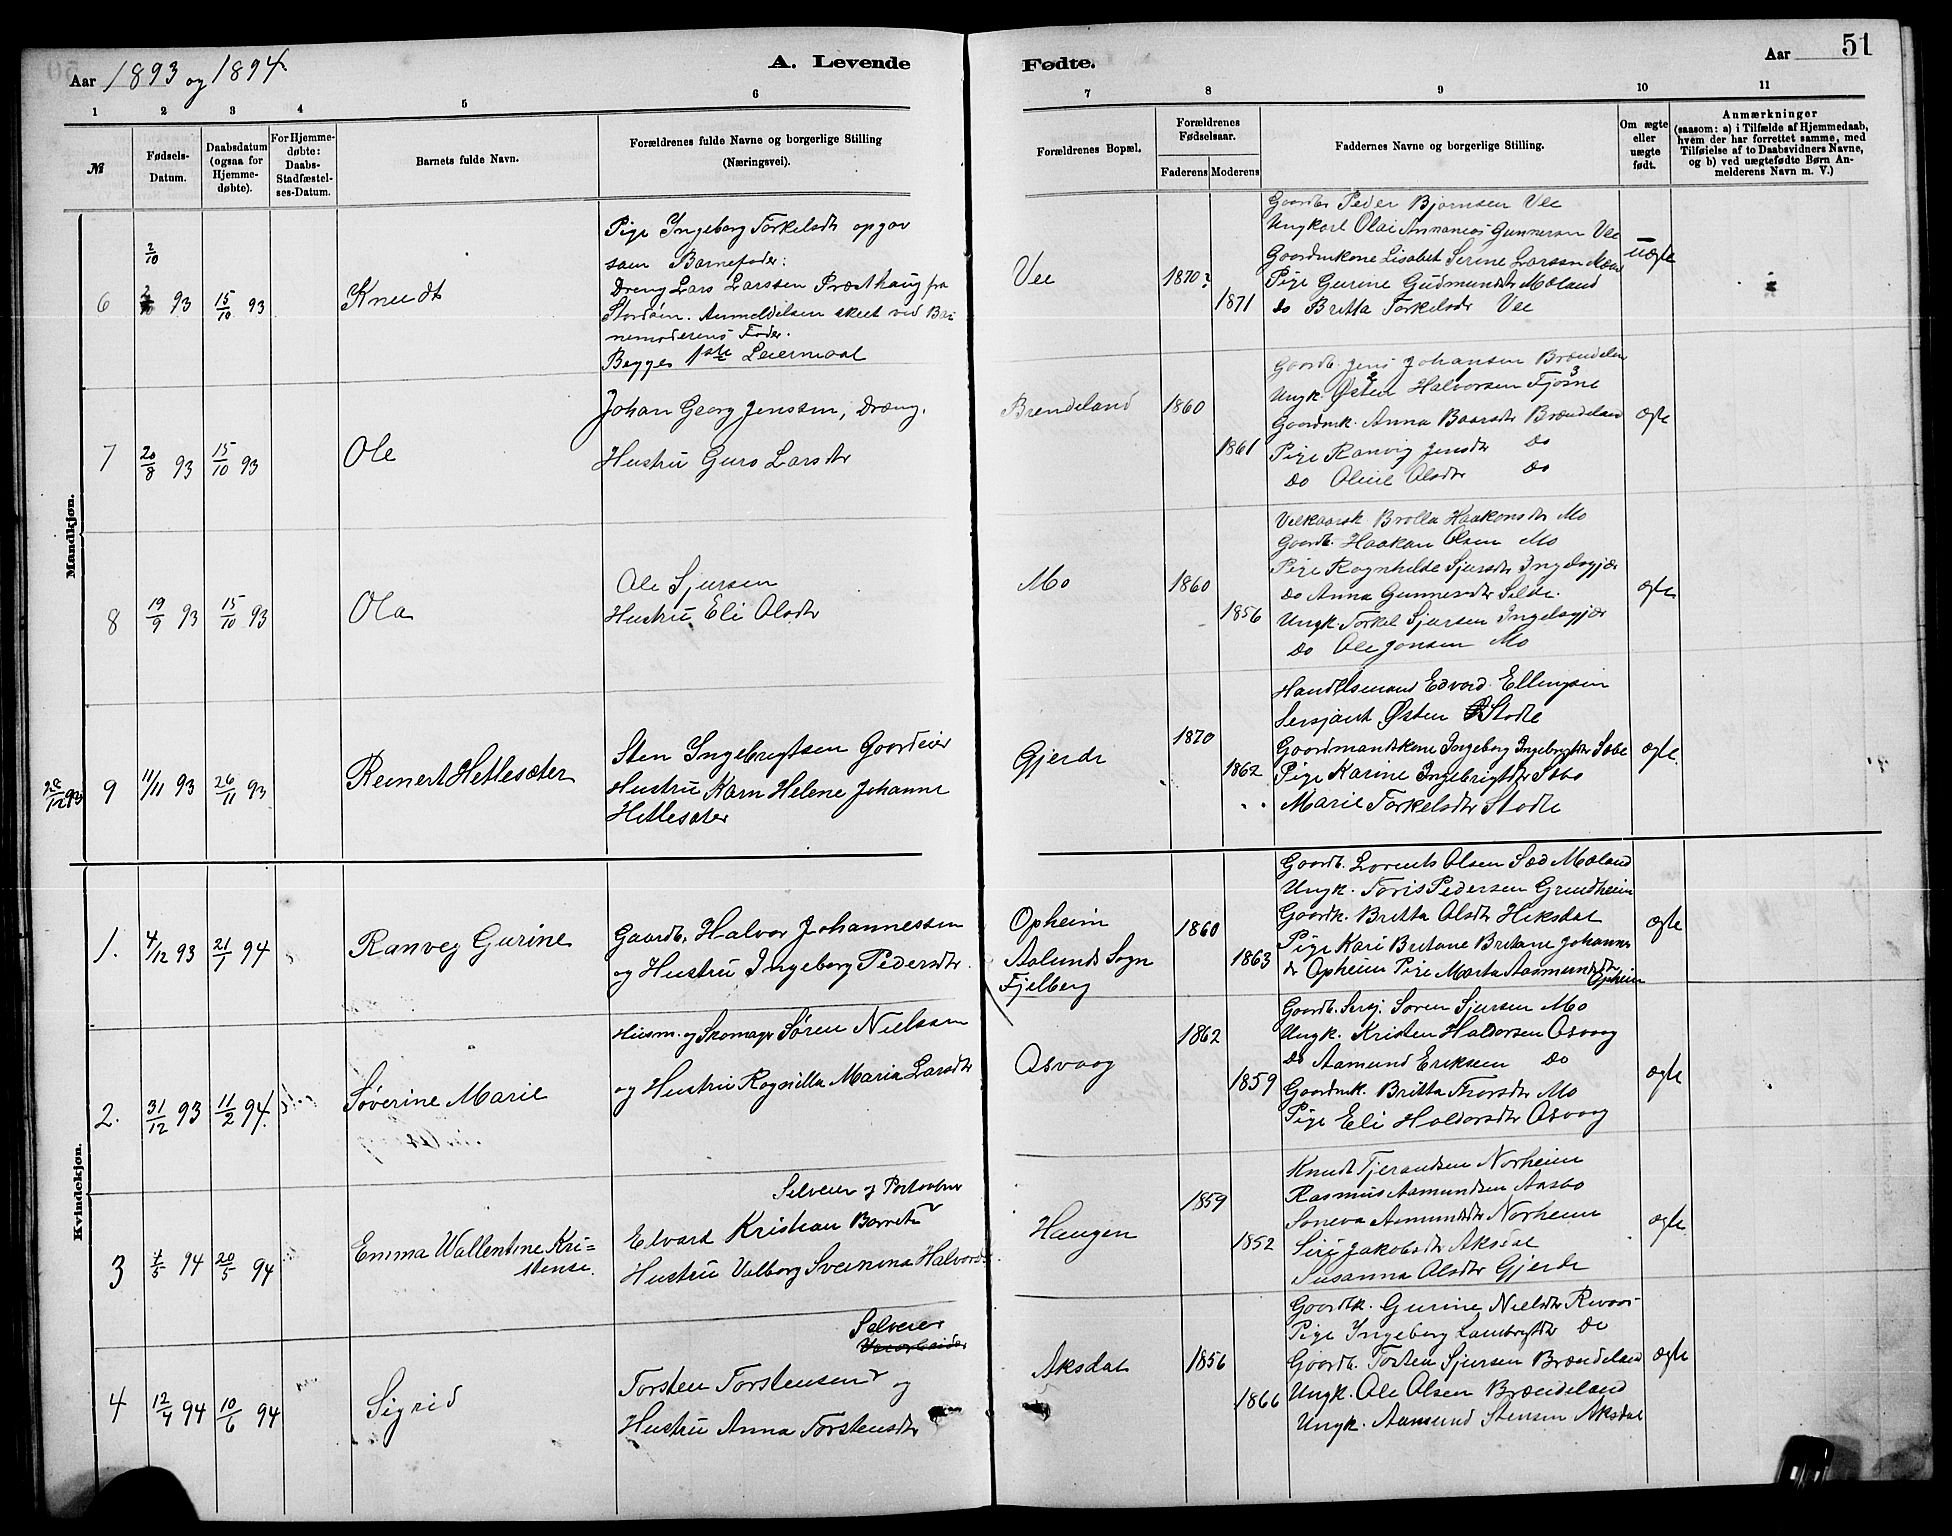 Aar 1893 og 1894
A. Levende Fødte.
Aar 51
1 2 3 4 5 6 7 8 9 10 11
№
Fødsels-Datum.
Daabsdatum (ogsaa for Hjemme-døbte).
For Hjemme-døbte: Daabs-Stadfæstel-ses-Datum.
Barnets fulde Navn.
Forældrenes fulde Navne og borgerlige Stilling (Næringsvei).
Forældrenes Bopæl.
Forældrenes Fødselsaar.
Faderens Moderens
Faddernes Navne og borgerlige Stilling.
Om ægte eller uægte født.
Anmærkninger
(saasom: a) i Tilfælde af Hjemmedaab, hvem der har forrettet samme, med Tilføielse af to Daabsvidners Navne, og b) ved uægtefødte Børn An-melderens Navn m. V.)
Mandkjøn.
6 2/10 93 15/10 93
Knudt
Pige Ingeborg Torkelsdtr opgav
som Barnefader:
Dreng Lars Larssen Præsthaug fra
Stordøen. Anmeldelsen skeet ved Bar-
nemoderens Fader.
Begges 1ste Leiermaal
Vee
1870?
1871
Gaardbr Peder Bjørnsen Vee
Ungkarl Olai Annanias Gunnersen Vee
Gaardmkone Lisabet Serine Larssen
Pige Gurine Gudmundsdtr Mæland
do Britta Torkelsdtr Vee
uægte
7 20/8 93 15/10 93
Ole
Johan Georg Jenssen, Dreng.
Hustru Guro Larsdtr
Brendeland
1860
1861
Gaardb. Jens Johansen Brændelan
Ungk. Østen Halvorsen Fjøsne
Gaardmk. Anna Baarsdtr Brændelan
Pige Ranvig Jensdtr Do
Do Oline Olsdtr Do
ægte
8 19/9 93 15/10 93
Ola
Ole Sjursen
Hustru Eli Olsdtr
Mo
1860
1856
Brolla Haakonsdtr Mo
Gaardb. Haakon Olsen Mo
Pige Ragnhilde Sjursdtr Ingelsgjær
Do Anna Gunnersdtr Silde.
Ungk. Torkel Sjursen Ingelsgjær
Do Ole Jonsen Mo
ægte
9 11/11 93 26/11 93
Reinert Hetlesæter
Sten Ingebrigtsen Gaardeier
Hustru Karn Helene Johanne
Hetlesæter
Gjerde
1870
1862
Handelsmand Edvard Ellingsen
Sersjant Østen Stodle
Gaardmandskone Ingeborg Ingebrigtsdtr Søbø
Pige Karine Ingebrigtsdtr Søbø
Marie Torkelsdtr Stodle
ægte
Kvindekjøn.
1. 4/12 93 21/1 94
Ranveg Gurine
Gaardb. Halvor Johannessen
og Hustru Ingeborg Pedersdtr.
Opheim
Aalunds Sogn
Fjelberg
1860
1863
Gaardb. Lorents Olsen Sæd Mæland
Ungk. Toris Pedersen Grindheim
Gaardk. Britta Olsdtr Hiksdal
Pige Kari Britane Britane Johannes
dr Opheim Pige Marta Aasmundsdtr
Opheim
ægte
2. 31/12 93 11/2 94.
Søverine Marie
Husm. og Skomager Søren Nielssen
og Hustru Ragnilla Maria Larsdtr
Osvaag
1862
1859
Gaardb. Sersj. Søren Sjursen Mo
Ungk. Kristen Haldorsen Osvaag
Do Aamund Eriksen Do
Gaardmk. Britta Thorsdtr Mo
Pige Eli Haldorsdtr Osvaag
ægte
3 1/5 94 20/5 94
Emma Wallentine Kri=
stense.
Selveier og Postaabner
Edvard Kristian Barreth
Hustru Valborg Sverinna Halvorsd.
Haugen
1859
1852
Knudt Tjerandsen Norheim
Rasmus Aamundsen Aasbø
Soneva Aamundsdtr Norheim
Siri Jakobsdtr Aksdal
Susanna Olsdtr Gjerde
ægte
4 12/4 94 10/6 94
Sigrid
Selveier
Torsten Torstensen og
Hustru Anna Torstensdtr
Aksdal
1856
1866
Gaardk. Gurine Nielsdtr
Pige Ingeborg Lambrigtsdtr Do
Gaardb. Torsten Sjursen Brændeland
Ungk. Ole Olsen Brændeland
Ungk. Aamund Stensen Aksdal
ægte